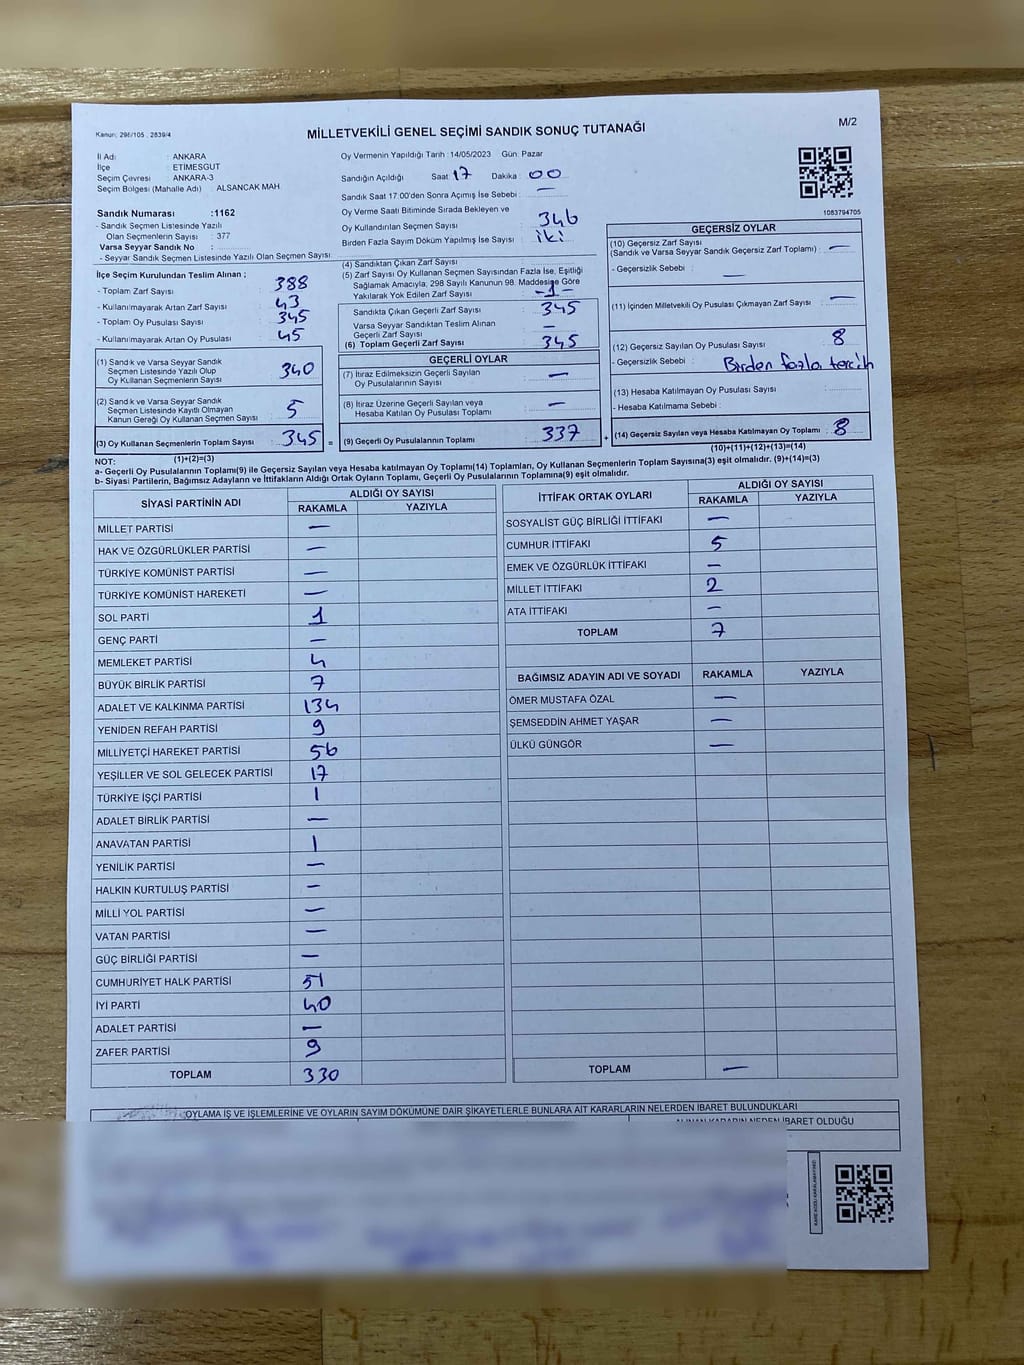 Kanun: 298/105 , 2839/4
MİLLETVEKİLİ GENEL SEÇİMİ SANDIK SONUÇ TUTANAĞI
M/2
İl Adı : ANKARA
İlçe : ETİMESGUT
Seçim Çevresi : ANKARA-3
Seçim Bölgesi (Mahalle Adı) : ALSANCAK MAH
Oy Vermenin Yapıldığı Tarih : 14/05/2023 Gün: Pazar
Sandığın Açıldığı Saat 17 Dakika : 00
Sandık Saat 17:00'den Sonra Açımış İse Sebebi : —
Oy Verme Saati Bitiminde Sırada Bekleyen ve
Oy Kullandırılan Seçmen Sayısı : 346
Birden Fazla Sayım Döküm Yapılmış İse Sayısı : iki
1083794705
Sandık Numarası :1162
- Sandık Seçmen Listesinde Yazılı
Olan Seçmenlerin Sayısı : 377
Varsa Seyyar Sandık No :
- Seyyar Sandık Seçmen Listesinde Yazılı Olan Seçmen Sayısı:
İlçe Seçim Kurulundan Teslim Alınan ;
- Toplam Zarf Sayısı : 388
- Kullanılmayarak Artan Zarf Sayısı : 43
- Toplam Oy Pusulası Sayısı : 345
- Kullanılmayarak Artan Oy Pusulası : 45
(1) Sandık ve Varsa Seyyar Sandık
Seçmen Listesinde Yazılı Olup
Oy Kullanan Seçmenlerin Sayısı : 340
(2) Sandık ve Varsa Seyyar Sandık
Seçmen Listesinde Kayıtlı Olmayan
Kanun Gereği Oy Kullanan Seçmen Sayısı : 5
(3) Oy Kullanan Seçmenlerin Toplam Sayısı : 345 =
(1)+(2)=(3)
(4) Sandıktan Çıkan Zarf Sayısı
(5) Zarf Sayısı Oy Kullanan Seçmen Sayısından Fazla İse, Eşitliği
Sağlamak Amacıyla, 298 Sayılı Kanunun 98. Maddesine Göre
Yakılarak Yok Edilen Zarf Sayısı : -1-
Sandıkta Çıkan Geçerli Zarf Sayısı : 345
Varsa Seyyar Sandıktan Teslim Alınan
Geçerli Zarf Sayısı : —
(6) Toplam Geçerli Zarf Sayısı : 345
GEÇERLİ OYLAR
(7) İtiraz Edilmeksizin Geçerli Sayılan
Oy Pusulalarının Sayısı : —
(8) İtiraz Üzerine Geçerli Sayılan veya
Hesaba Katılan Oy Pusulası Toplamı : —
(9) Geçerli Oy Pusulalarının Toplamı : 337 +
GEÇERSİZ OYLAR
(10) Geçersiz Zarf Sayısı
(Sandık ve Varsa Seyyar Sandık Geçersiz Zarf Toplamı) : —
- Geçersizlik Sebebi : —
(11) İçinden Milletvekili Oy Pusulası Çıkmayan Zarf Sayısı : —
(12) Geçersiz Sayılan Oy Pusulası Sayısı : 8
- Geçersizlik Sebebi : Birden fazla tercih
(13) Hesaba Katılmayan Oy Pusulası Sayısı :
- Hesaba Katılmama Sebebi :
(14) Geçersiz Sayılan veya Hesaba Katılmayan Oy Toplamı : 8
(10)+(11)+(12)+(13)=(14)
NOT:
a- Geçerli Oy Pusulalarının Toplamı(9) ile Geçersiz Sayılan veya Hesaba katılmayan Oy Toplamı(14) Toplamları, Oy Kullanan Seçmenlerin Toplam Sayısına(3) eşit olmalıdır. (9)+(14)=(3)
b- Siyasi Partilerin, Bağımsız Adayların ve İttifakların Aldığı Ortak Oyların Toplamı, Geçerli Oy Pusulalarının Toplamına(9) eşit olmalıdır.
SİYASİ PARTİNİN ADI ALDIĞI OY SAYISI
RAKAMLA YAZIYLA
MİLLET PARTİSİ —
HAK VE ÖZGÜRLÜKLER PARTİSİ —
TÜRKİYE KOMÜNİST PARTİSİ —
TÜRKİYE KOMÜNİST HAREKETİ —
SOL PARTİ 1
GENÇ PARTİ —
MEMLEKET PARTİSİ 4
BÜYÜK BİRLİK PARTİSİ 7
ADALET VE KALKINMA PARTİSİ 134
YENİDEN REFAH PARTİSİ 9
MİLLİYETÇİ HAREKET PARTİSİ 56
YEŞİLLER VE SOL GELECEK PARTİSİ 17
TÜRKİYE İŞÇİ PARTİSİ 1
ADALET BİRLİK PARTİSİ —
ANAVATAN PARTİSİ 1
YENİLİK PARTİSİ —
HALKIN KURTULUŞ PARTİSİ —
MİLLİ YOL PARTİSİ —
VATAN PARTİSİ —
GÜÇ BİRLİĞİ PARTİSİ —
CUMHURİYET HALK PARTİSİ 51
İYİ PARTİ 40
ADALET PARTİSİ —
ZAFER PARTİSİ 9
TOPLAM 330
İTTİFAK ORTAK OYLARI ALDIĞI OY SAYISI
RAKAMLA YAZIYLA
SOSYALİST GÜÇ BİRLİĞİ İTTİFAKI —
CUMHUR İTTİFAKI 5
EMEK VE ÖZGÜRLÜK İTTİFAKI —
MİLLET İTTİFAKI 2
ATA İTTİFAKI —
TOPLAM 7
BAĞIMSIZ ADAYIN ADI VE SOYADI RAKAMLA YAZIYLA
ÖMER MUSTAFA ÖZAL —
ŞEMSEDDİN AHMET YAŞAR —
ÜLKÜ GÜNGÖR —
TOPLAM —
OYLAMA İŞ VE İŞLEMLERİNE VE OYLARIN SAYIM DÖKÜMÜNE DAİR ŞİKAYETLERLE BUNLARA AİT KARARLARIN NELERDEN İBARET BULUNDUKLARI
ALINAN KARARIN NEDEN İBARET OLDUĞU